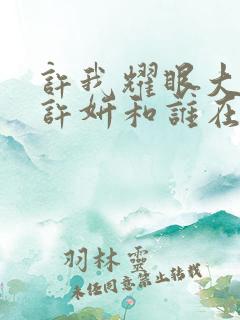 許我耀眼大
許妍和誰在
羽林靈
未經同意禁止轉載